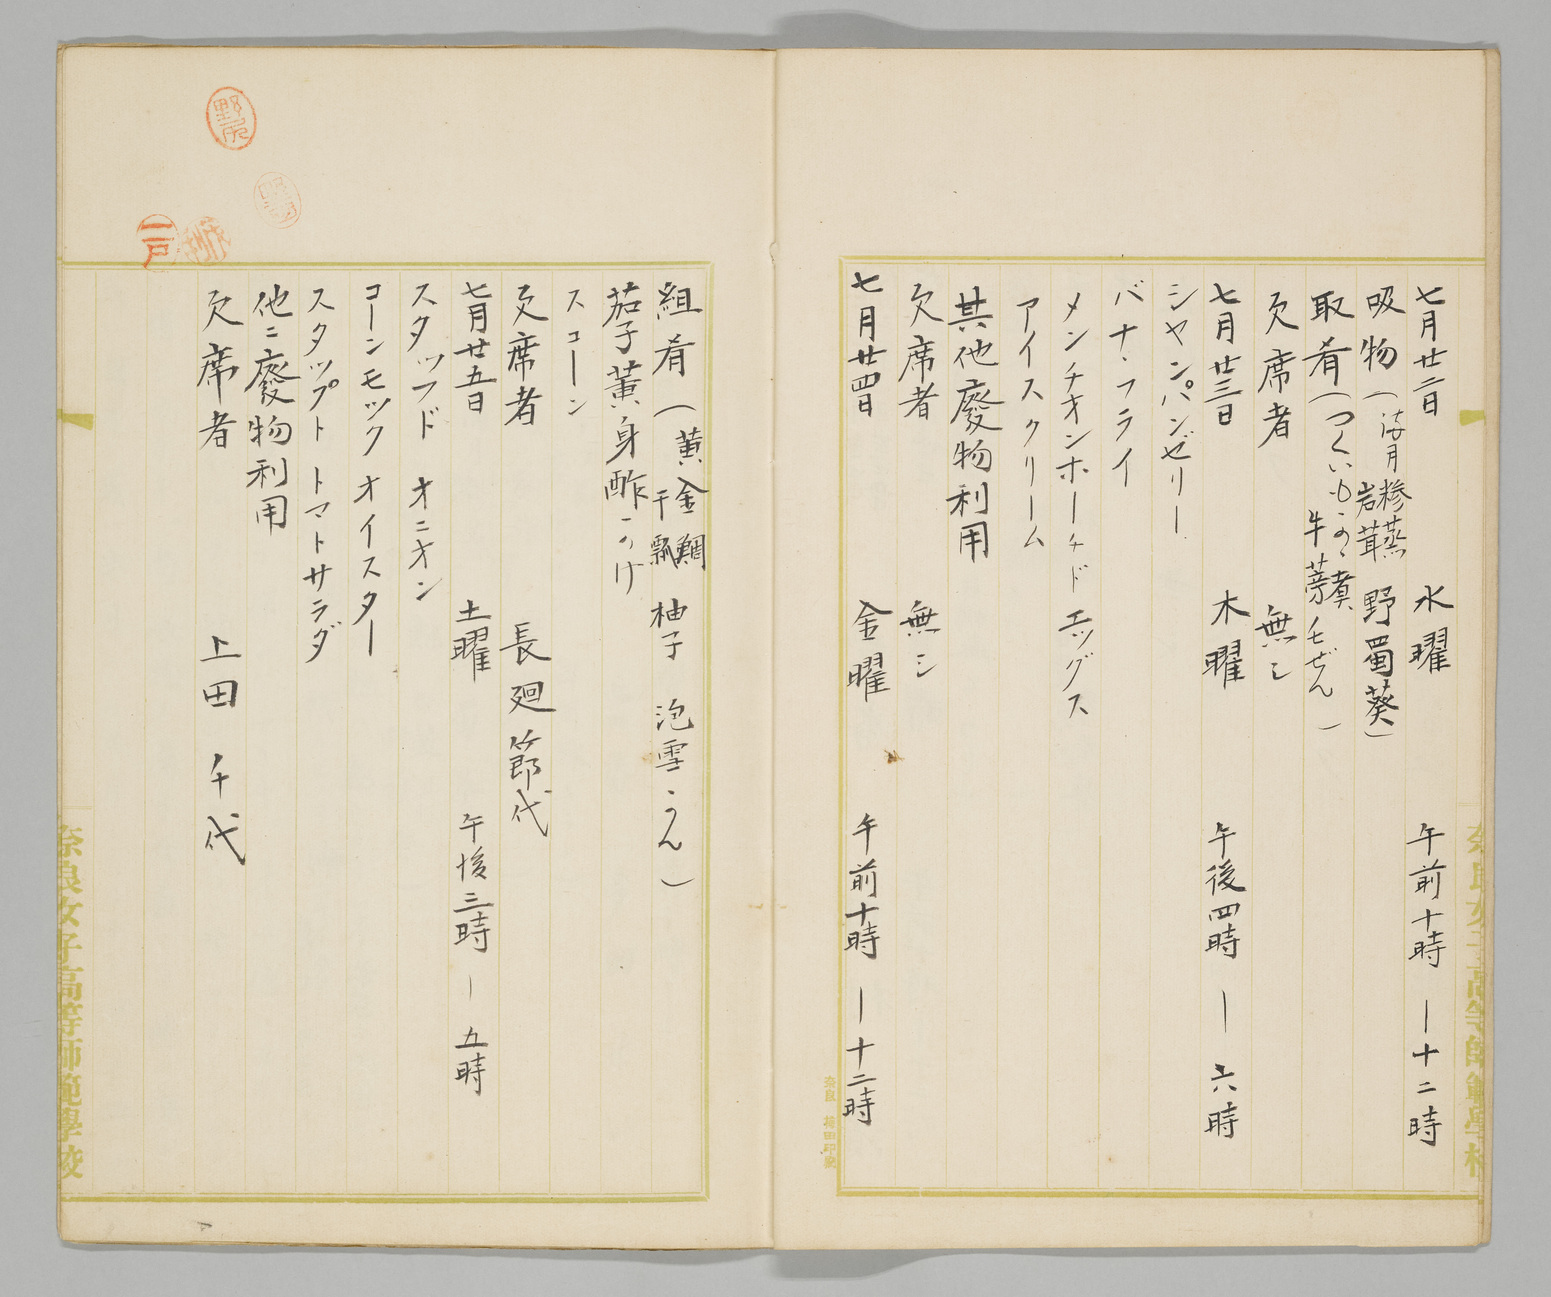 七月廿二日 水曜 午前十時ー十二時
吸物(海月 糝蒸 岩茸 野蜀葵)
取肴(つくいも 牛蒡 ぜん)
欠席者 無シ
七月廿三日 木曜 午後四時ー六時
シャンパンゼリー
バナヽフライ
メンチオンホーチド エッグス
アイスクリーム
其他廢物利用
欠席者 無シ
七月廿四日 金曜 午前十時ー十二時
組肴(黄金鯛 干瓢 柚子 泡雪かん)
茄子黄身酢かけ
スコーン
欠席者 長廻節代
七月廿五日 土曜 午後三時ー五時
スタッフド オニオン
コーンモック オイスター
スタッフト トマトサラダ
他ニ廢物利用
欠席者 上田千代
野尻
二戸
奈良女子高等師範學校
奈良女子高等師範學校